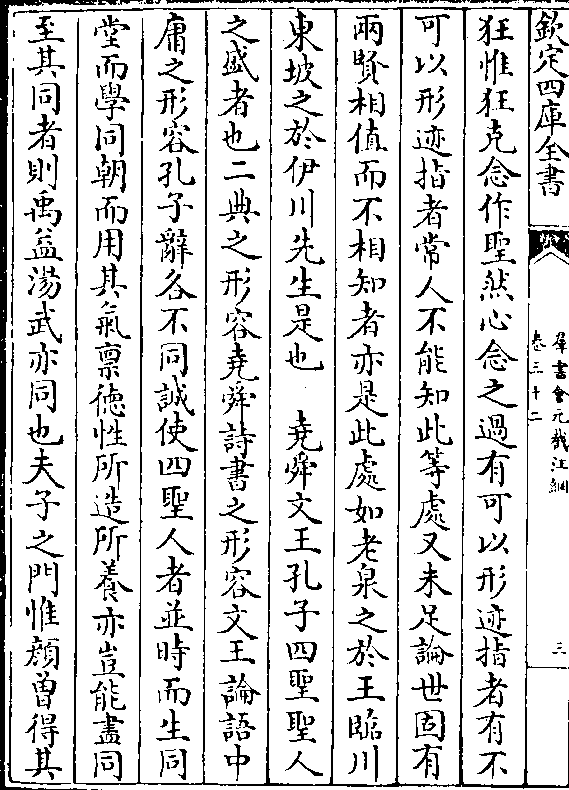 欽定四庫全書
羣書會元截江網
卷三十二
三
狂惟狂克念作聖然心念之過有可以形迹指者有不
可以形迹指者常人不能知此等處又未足論世固有
兩賢相值而不相知者亦是此處如老泉之於王臨川
東坡之於伊川先生是也　堯舜文王孔子四聖聖人
之盛者也二典之形容堯舜詩書之形容文王論語中
庸之形容孔子辭各不同誠使四聖人者並時而生同
堂而學同朝而用其氣禀德性所造所養亦豈能盡同
至其同者則禹益湯武亦同也夫子之門惟顔曽得其